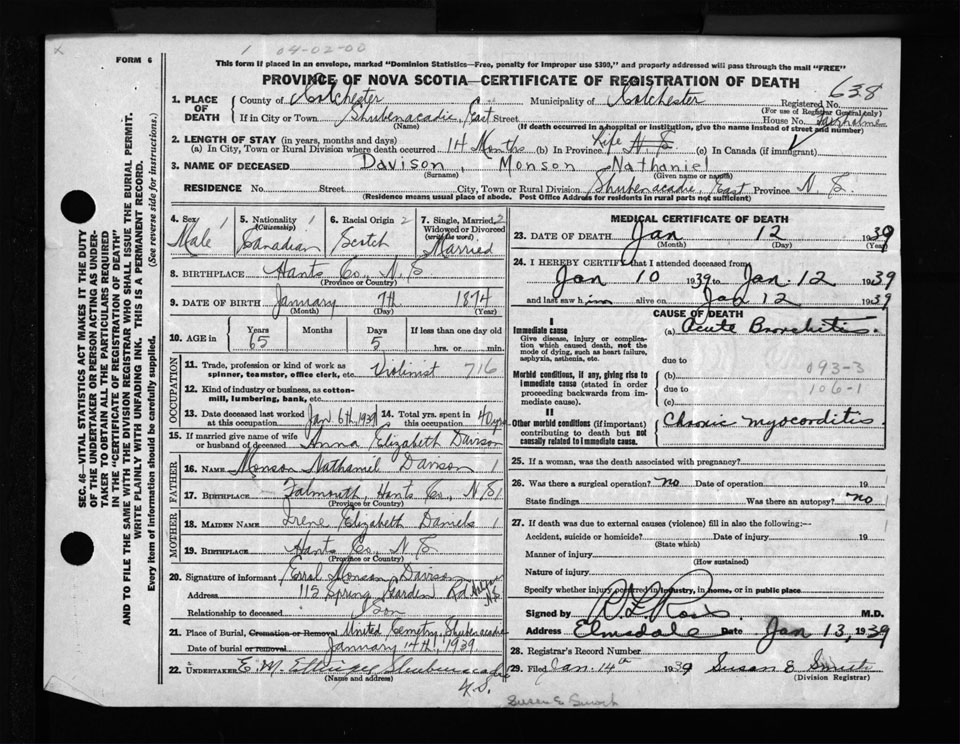 x
FORM 6
1 04-02-00
This form if placed in an envelope, marked "Dominion Statistics—Free, penalty for improper use $300," and properly addressed will pass through the mail "FREE"
PROVINCE OF NOVA SCOTIA—CERTIFICATE OF REGISTRATION OF DEATH
638
SEC. 46—VITAL STATISTICS ACT MAKES IT THE DUTY
OF THE UNDERTAKER OR PERSON ACTING AS UNDER-
TAKER TO OBTAIN ALL THE PARTICULARS REQUIRED
IN THE "CERTIFICATE OF REGISTRATION OF DEATH"
AND TO FILE THE SAME WITH THE DIVISION REGISTRAR WHO SHALL ISSUE THE BURIAL PERMIT.
WRITE PLAINLY WITH UNFADING INK. THIS IS A PERMANENT RECORD.
Every item of information should be carefully supplied. (See reverse side for instructions.)
1. PLACE OF DEATH
County of Colchester Municipality of Colchester Registered No.
(For use of Registrar General only)
If in City or Town Shubenacadie, East Street House No.
(Name) (If death occurred in a hospital or institution, give the name instead of street and number)
2. LENGTH OF STAY (in years, months and days)
(a) In City, Town or Rural Division where death occurred 14 Months (b) In Province Life N.S (c) In Canada (if immigrant)
3. NAME OF DECEASED Davison, Monson Nathaniel
(Surname) (Given name or names)
RESIDENCE No. Street City, Town or Rural Division Shubenacadie, East Province N.S.
(Residence means usual place of abode. Post Office Address for residents in rural parts not sufficient)
4. Sex 1 Male
5. Nationality 1 (Citizenship) Canadian
6. Racial Origin 2 Scotch
7. Single, Married, 2 Widowed or Divorced (write the word) Married
8. BIRTHPLACE Hants Co., N.S
(Province or Country)
9. DATE OF BIRTH January 7th 1874
(Month) (Day) (Year)
10. AGE in Years 65 Months Days 5 If less than one day old hrs. or min.
OCCUPATION
11. Trade, profession or kind of work as spinner, teamster, office clerk, etc. Violinist 716
12. Kind of industry or business, as cotton-mill, lumbering, bank, etc.
13. Date deceased last worked at this occupation Jan 6th 1939 14. Total yrs. spent in this occupation 40 yrs
15. If married give name of wife or husband of deceased Anna Elizabeth Davison
FATHER
16. NAME Monson Nathaniel Davison 1
17. BIRTHPLACE Falmouth, Hants Co., N.S 1
(Province or Country)
MOTHER
18. MAIDEN NAME Irene Elizabeth Daniels 1
19. BIRTHPLACE Hants Co., N.S
(Province or Country)
20. Signature of informant Errol Monson Davison
Address 115 Spring Garden Rd Halifax N.S.
Relationship to deceased Son
21. Place of Burial, Cremation or Removal United Cemetry, Shubenacadie
Date of burial or removal January 14th, 1939
22. UNDERTAKER E.M. Ettinger Shubenacadie
(Name and address)
N.S.
MEDICAL CERTIFICATE OF DEATH
23. DATE OF DEATH Jan 12 1939
(Month) (Day) (Year)
24. I HEREBY CERTIFY that I attended deceased from
Jan 10 1939 to Jan. 12 1939
and last saw him alive on Jan 12 1939
CAUSE OF DEATH
I
Immediate cause
Give disease, injury or complication which caused death, not the mode of dying, such as heart failure, asphyxia, asthenia, etc.
(a) Acute Bronchitis.
due to
Morbid conditions, if any, giving rise to immediate cause (stated in order proceeding backwards from immediate cause).
(b) 093-3
due to 106-1
(c)
II
Other morbid conditions (if important) contributing to death but not causally related to immediate cause.
Chronic myocorditis
25. If a woman, was the death associated with pregnancy?
26. Was there a surgical operation? no Date of operation 19
State findings Was there an autopsy? no
27. If death was due to external causes (violence) fill in also the following:—
Accident, suicide or homicide? Date of injury 19
(State which)
Manner of injury
(How sustained)
Nature of injury
Specify whether injury occurred in industry, in home, or in public place
Signed by M.D.
Address Elmsdale Date Jan 13, 1939
28. Registrar's Record Number
29. Filed Jan. 14th 1939 Susan E Smith
(Division Registrar)
Susan E. Smith